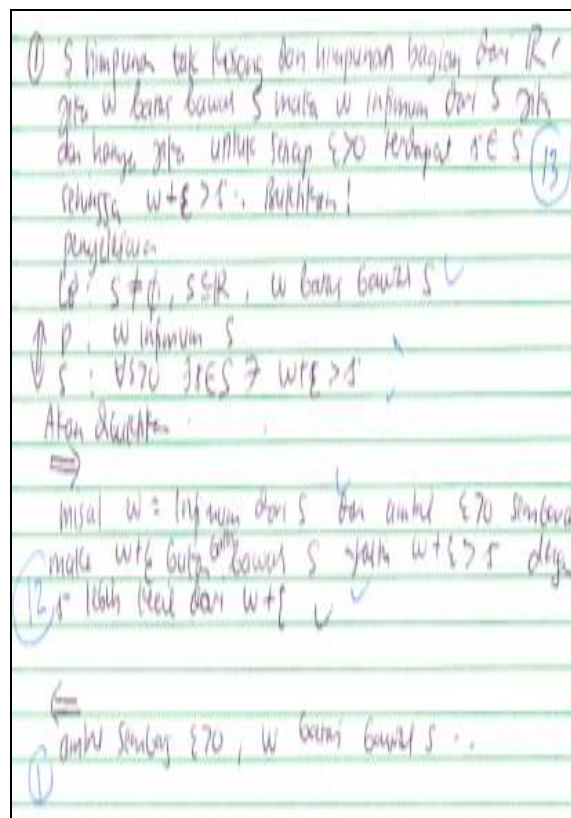 ① S himpunan tak kosong dan himpunan bagian dari R,
jika w batas bawah S maka w infimum dari S jika
dan hanya jika untuk setiap ε>0 terdapat s ∈ S
sehingga w+ε > s. Buktikan!
13
penyelesaian
S ≠ ∅, S ⊆ R, w batas bawah S
P : w infimum S
∃ w+ε > s
Akan dibuktikan
⇒
misal w = infimum dari S dan ambil ε>0
maka w+ε bukan batas bawah S yaitu w+ε > s
12
s lebih kecil dari w+ε
⇐
ambil ε>0, w batas bawah S
1